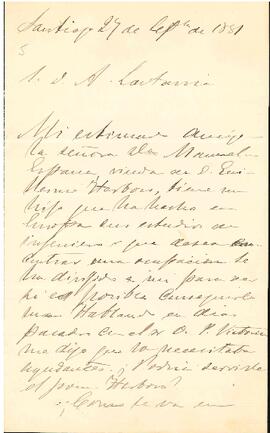 Santiago 27 de Sepbre de 1881
S. d A. Lastarria
Mi estimado amigo
La señora Da Manuela
España, viuda de D. Gui
llermo Harbour, tiene un
hijo que ha hecho en
Europa sus estudios de
ingeniero i que desea en
contrar una ocupacion. Se
ha dirijido a mí para ver
si es posible conseguirle
una. Hablando en dias
pasados con el Dr. O. P.
me dijo que tu necesitabas
ayudantes. ¿Podria servirte
el jóven Harbour?
¿Como te va en